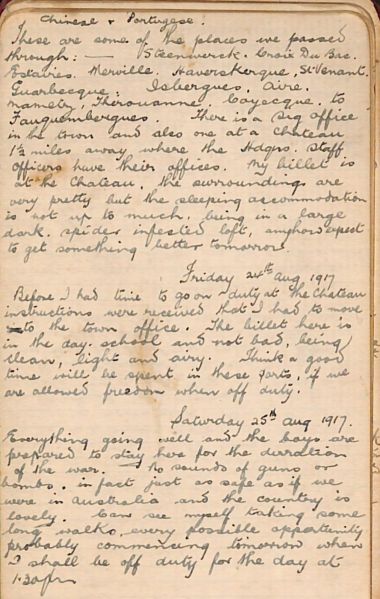 Chinese & Portugese.
These are some of the places we passed
through: — Steenwerck. Croix Du Bac.
Estaires. Merville, Haverskerque, St Venant.
Guarbecque, Isbergues, Aire,
Mametz, Therouanne, Coyecque, to
Fauquembergues. There is a Sig office
in the town and also one at a Chateau
1½ miles away where the Hdqrs. Staff
Officers have their offices. My billet is
at the Chateau, the surroundings are
very pretty but the sleeping accommodation
is not up to much, being in a large
dark, spider infested loft, anyhow expect
to get something better tomorrow.
Friday 24th Aug 1917
Before I had time to go on duty at the Chateau
instructions were received that I had to move
to the town office. The billet here is
in the day school and not bad, being
clean, light and airy. Think a good
time will be spent in these parts, if we
are allowed freedom when off duty.
Saturday 25th Aug 1917.
Everything going well and the boys are
prepared to stay here for the duration
of the war. No sounds of guns or
bombs, in fact just as safe as if we
were in Australia and the country is
lovely. Can see myself taking some
long walks, every possible opportunity
probably commencing tomorrow when
I shall be off duty for the day at
1.30pm